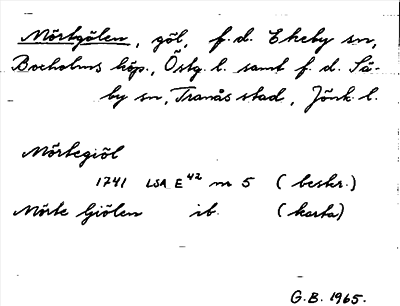 Mörtgölen, göl, f.d. Ekeby sn,
Boxholms köp., Östg. l. samt f. d. Sä-
by sn, Tranås stad, Jönk. l.
Mörtegiöl
1741 LSA E42 nr 5 (beskr.)
Mörte Giölen ib. (karta)
G.B. 1965.